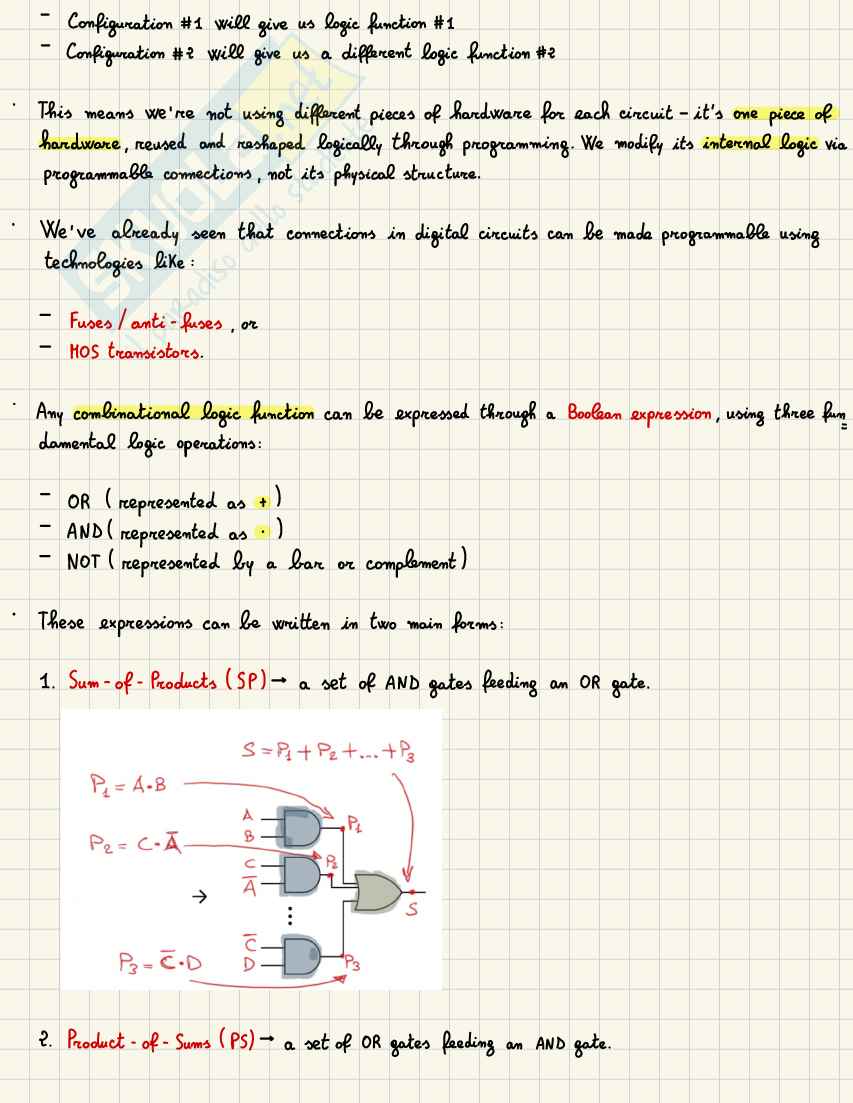 - Configuration #1 will give us logic function #1
- Configuration #2 will give us a different logic function #2
· This means we're not using different pieces of hardware for each circuit - it's one piece of
hardware, reused and reshaped logically through programming. We modify its internal logic via
programmable connections, not its physical structure.
· We've already seen that connections in digital circuits can be made programmable using
technologies like:
- Fuses / anti-fuses, or
- MOS transistors.
· Any combinational logic function can be expressed through a Boolean expression, using three fun=
damental logic operations:
- OR (represented as +)
- AND (represented as ·)
- NOT (represented by a bar or complement)
· These expressions can be written in two main forms:
1. Sum-of-Products (SP) → a set of AND gates feeding an OR gate.
S = P₁ + P₂ + ... + P₃
P₁ = A·B
A
B
P₁
P₂ = C·A̅
C
A̅
P₂
→
⋮
S
P₃ = C̅·D
C̅
D
P₃
2. Product-of-Sums (PS) → a set of OR gates feeding an AND gate.